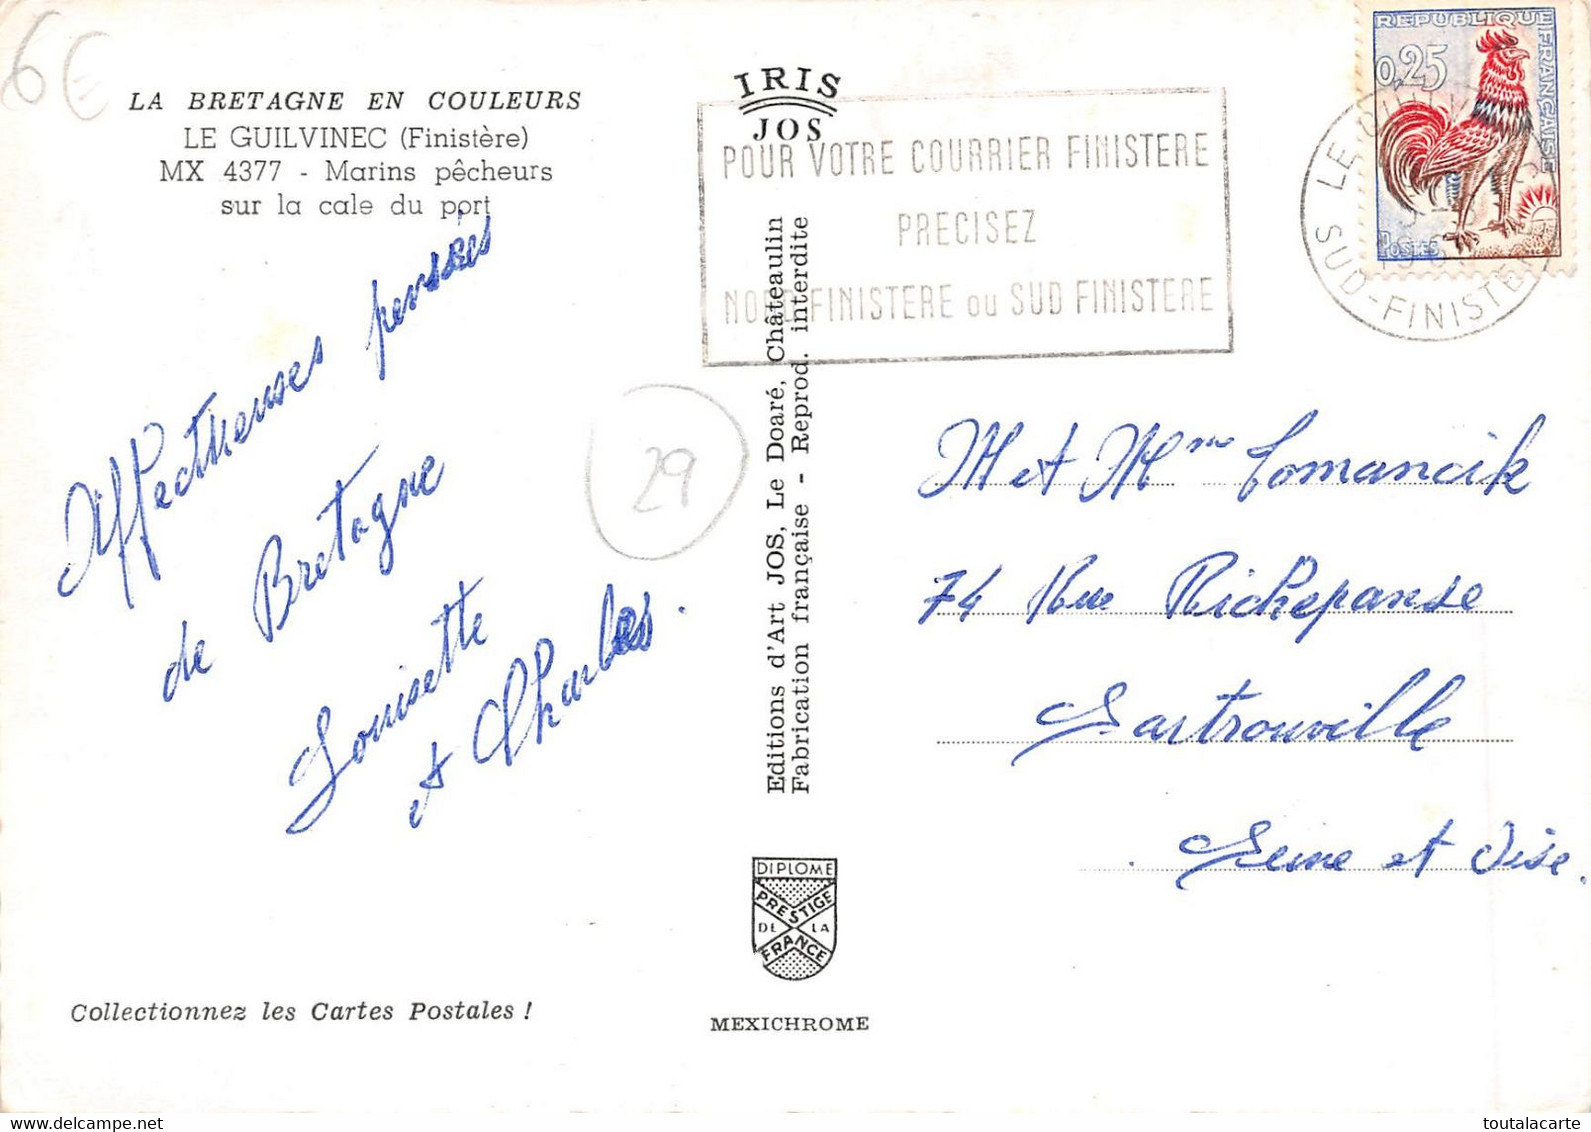 6€
LA BRETAGNE EN COULEURS
LE GUILVINEC (Finistère)
MX 4377 - Marins pêcheurs
sur la cale du port
Affectueuses pensées
de Bretagne
Louisette
et Charles.
29
Collectionnez les Cartes Postales !
IRIS
JOS
POUR VOTRE COURRIER FINISTERE
PRECISEZ
NORD FINISTERE ou SUD FINISTERE
Editions d'Art JOS, Le Doaré, Châteaulin
Fabrication française - Reprod. interdite
DIPLOME
PRESTIGE
DE LA
FRANCE
MEXICHROME
REPUBLIQUE FRANÇAISE
0,25
POSTES
LE
SUD-FINISTERE
M et Mme Tomancik
74 Rue Richepanse
Sartrouville
Seine et Oise.
toutalacarte